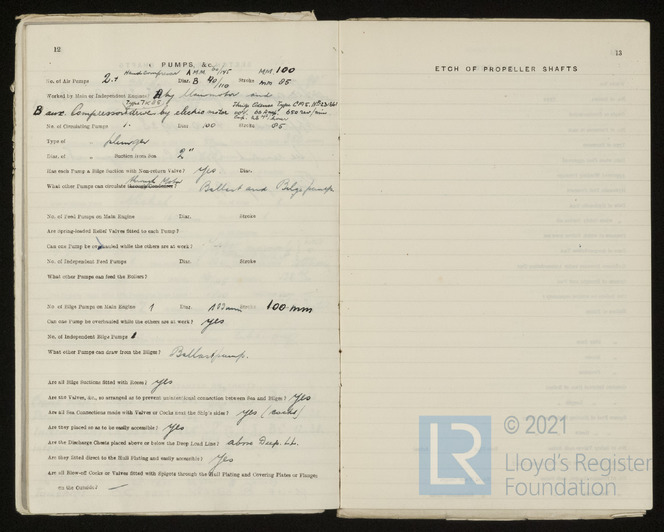 12
PUMPS, &c.
No. of Air Pumps 2.+ Hand Compressor A M.M. /145 MM 100
Diar. B 40/110 Stroke mm 85
Worked by Main or Independent Engines? A by Mainmotor and
B aux. Compressor driven by electric motor
No. of Circulating Pumps 1. Diar 100 Stroke 85
Type of „ plunger
Diar. of „ Suction from Sea 2"
Has each Pump a Bilge Suction with Non-return Valve? Yes Diar.
What other Pumps can circulate through Motor through Condenser? Ballast and Bilge pumps
No. of Feed Pumps on Main Engine Diar. Stroke
Are Spring-loaded Relief Valves fitted to each Pump?
Can one Pump be overhauled while the others are at work?
No. of Independent Feed Pumps Diar. Stroke
What other Pumps can feed the Boilers?
No. of Bilge Pumps on Main Engine 1 Diar. mm Stroke 100 mm
Can one Pump be overhauled while the others are at work? Yes
No. of Independent Bilge Pumps 1
What other Pumps can draw from the Bilges? Ballastpump.
Are all Bilge Suctions fitted with Roses? Yes
Are the Valves, &c., so arranged as to prevent unintentional connection between Sea and Bilges? Yes
Are all Sea Connections made with Valves or Cocks next the Ship's sides? Yes
Are they placed so as to be easily accessible? Yes
Are the Discharge Chests placed above or below the Deep Load Line? above Deep. L.L.
Are they fitted direct to the Hull Plating and easily accessible? Yes
Are all Blow-off Cocks or Valves fitted with Spigots through the Hull Plating and Covering Plates or Flanges
on the Outside? —
13
ETCH OF PROPELLER SHAFTS
LR
© 2021
Lloyd's Register
Foundation